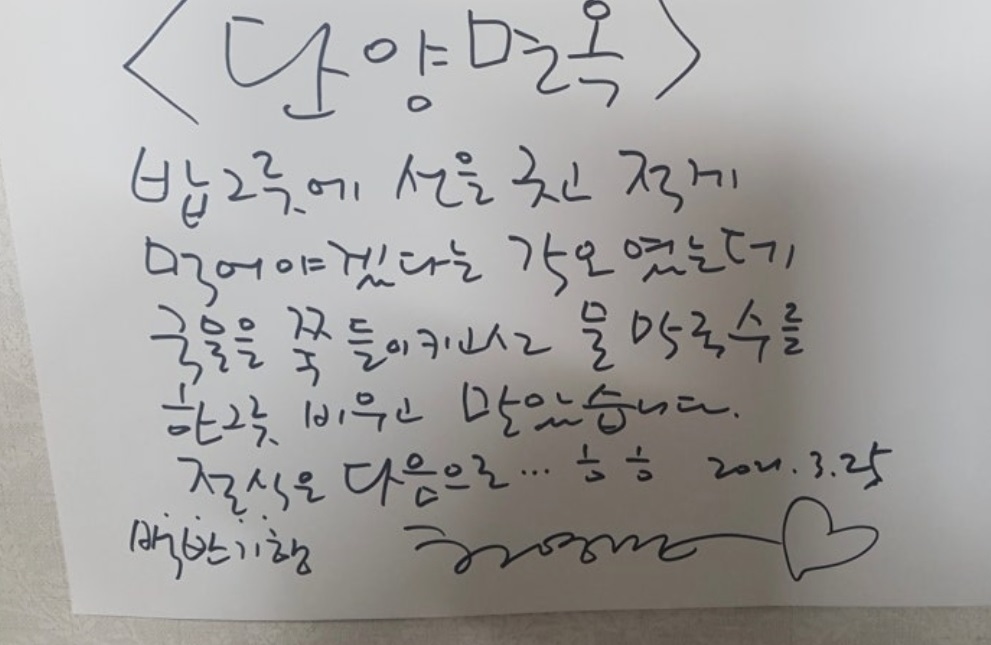 <단양면옥>
밥그릇에 선을 긋고 적게
먹어야겠다는 각오 였는데
국물을 쭉 들이키고서 물 막국수를
한그릇 비우고 말았습니다.
절식은 다음으로... ㅎㅎ 2021.3.25
백반기행